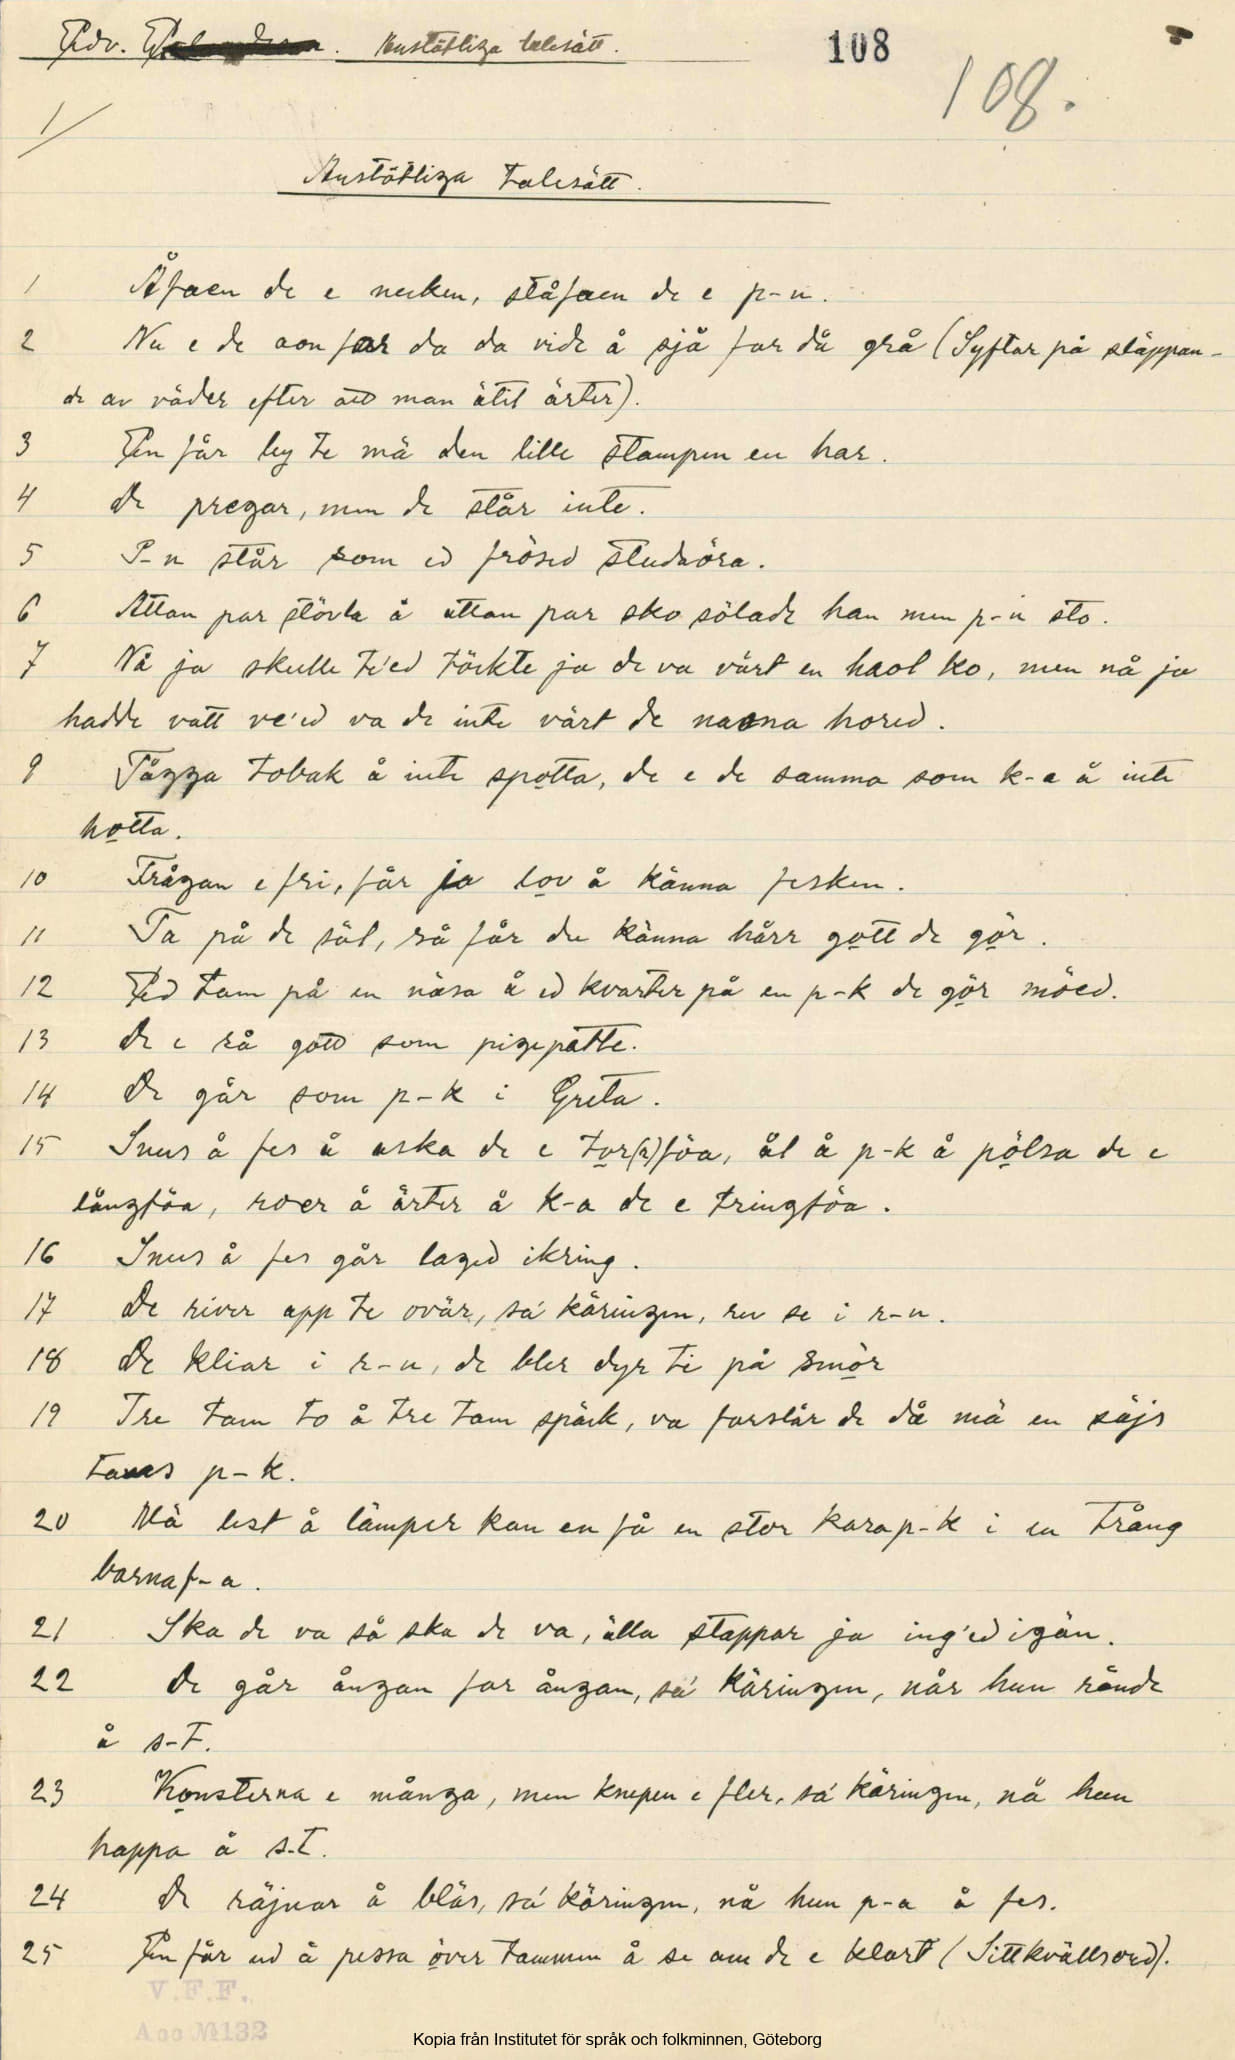 Edv. Anstötliga talesätt.
108
108.
1/
Anstötliga talesätt.
1 Åfaen de e necken, ståfaen de e p-n.
2 Nu e de aon far da da vide å sjå far då grå (Syftar på släppan-
de av väder efter att man ätit ärter).
3 En får leg te mä den lille stampen en har.
4 De pregar, men de står inte.
5 P-n står som ed frösed studaöra.
6 Attan par stövla å attan par sko sölade han men p-n sto.
7 Nå ja skulle te'ed töckte ja de va värt en haol ko, men nå ja
hadde vatt ve'ed va de inte värt de naona hored.
9 Tågga tobak å inte spotta, de e de samma som k-a å inte
hotta.
10 Frågan e fri, får ja lov å känna fesken.
11 Ta på de säl, så får du känna hårr gott de gör.
12 Ed tam på en näsa å ed kvarter på en p-k de gör möed.
13 De e så gott som pigepatte.
14 De går som p-k i Greta.
15 Snus å fes å aska de e tor(r)föa, ål å p-k å pölsa de e
långföa, roer å ärter å k-a de e tringföa.
16 Snus å fes går laged ikring.
17 De river app te ovär, sa' käringen, rev se i r-n.
18 De kliar i r-n, de bler dyr ti på smör
19 Tre tam to å tre tam späck, va farslår de då mä en säjs
tams p-k.
20 Mä lest å lämper kan en få en stor karap-k i en trång
barnaf-a.
21 Ska de va så ska de va, älla stappar ja ing'ed igän.
22 De går ångan far ångan, sa' käringen, når hun rånde
å s-t.
23 Konsterna e många, men knepen e fler, sa' käringen, nå hun
happa å s-t.
24 De räjnar å blås, sa' käringen, nå hun p-a å fes.
25 En får ud å pessa över tammen å se am de e klart (Sittkvällsord).
V.F.F.
Acc №132
Kopia från Institutet för språk och folkminnen, Göteborg